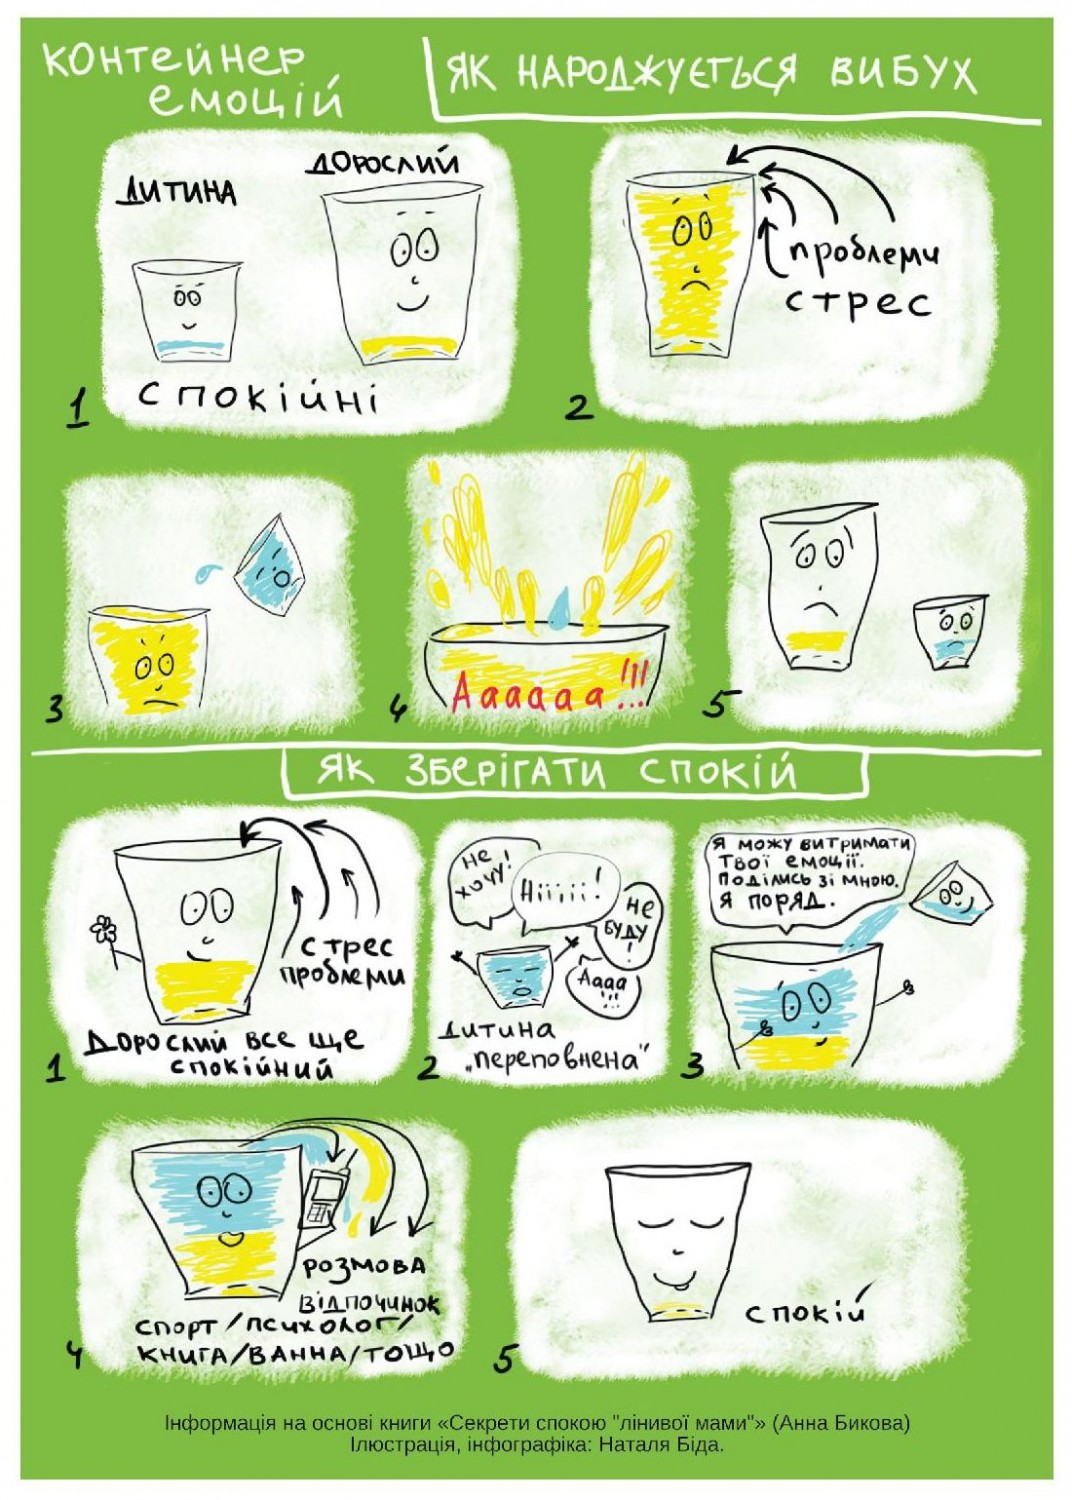 контейнер
емоцій
як народжується вибух
дитина
дорослий
спокійні
1
проблеми
стрес
2
3
Аааааа!!!
4
5
як зберігати спокій
стрес
проблеми
Дорослий все ще
спокійний
1
не
хочу!
Ніііііі!
не
буду
!
Аааа
!!!
дитина
„переповнена“
2
Я можу витримати
твої емоції.
Поділись зі мною.
Я поряд.
3
розмова
відпочинок
спорт/психолог/
книга/ванна/тощо
4
спокій
5
Інформація на основі книги «Секрети спокою "лінивої мами"» (Анна Бикова)
Ілюстрація, інфографіка: Наталя Біда.